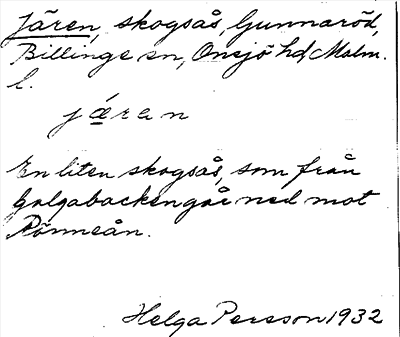 Jären, skogsås, Gunnaröd,
Billinge sn, Onsjö hd, Malm.
l.
jǽran
En liten skogsås, som från
Galgabacken går ned mot
Rönneån.
Helga Persson 1932